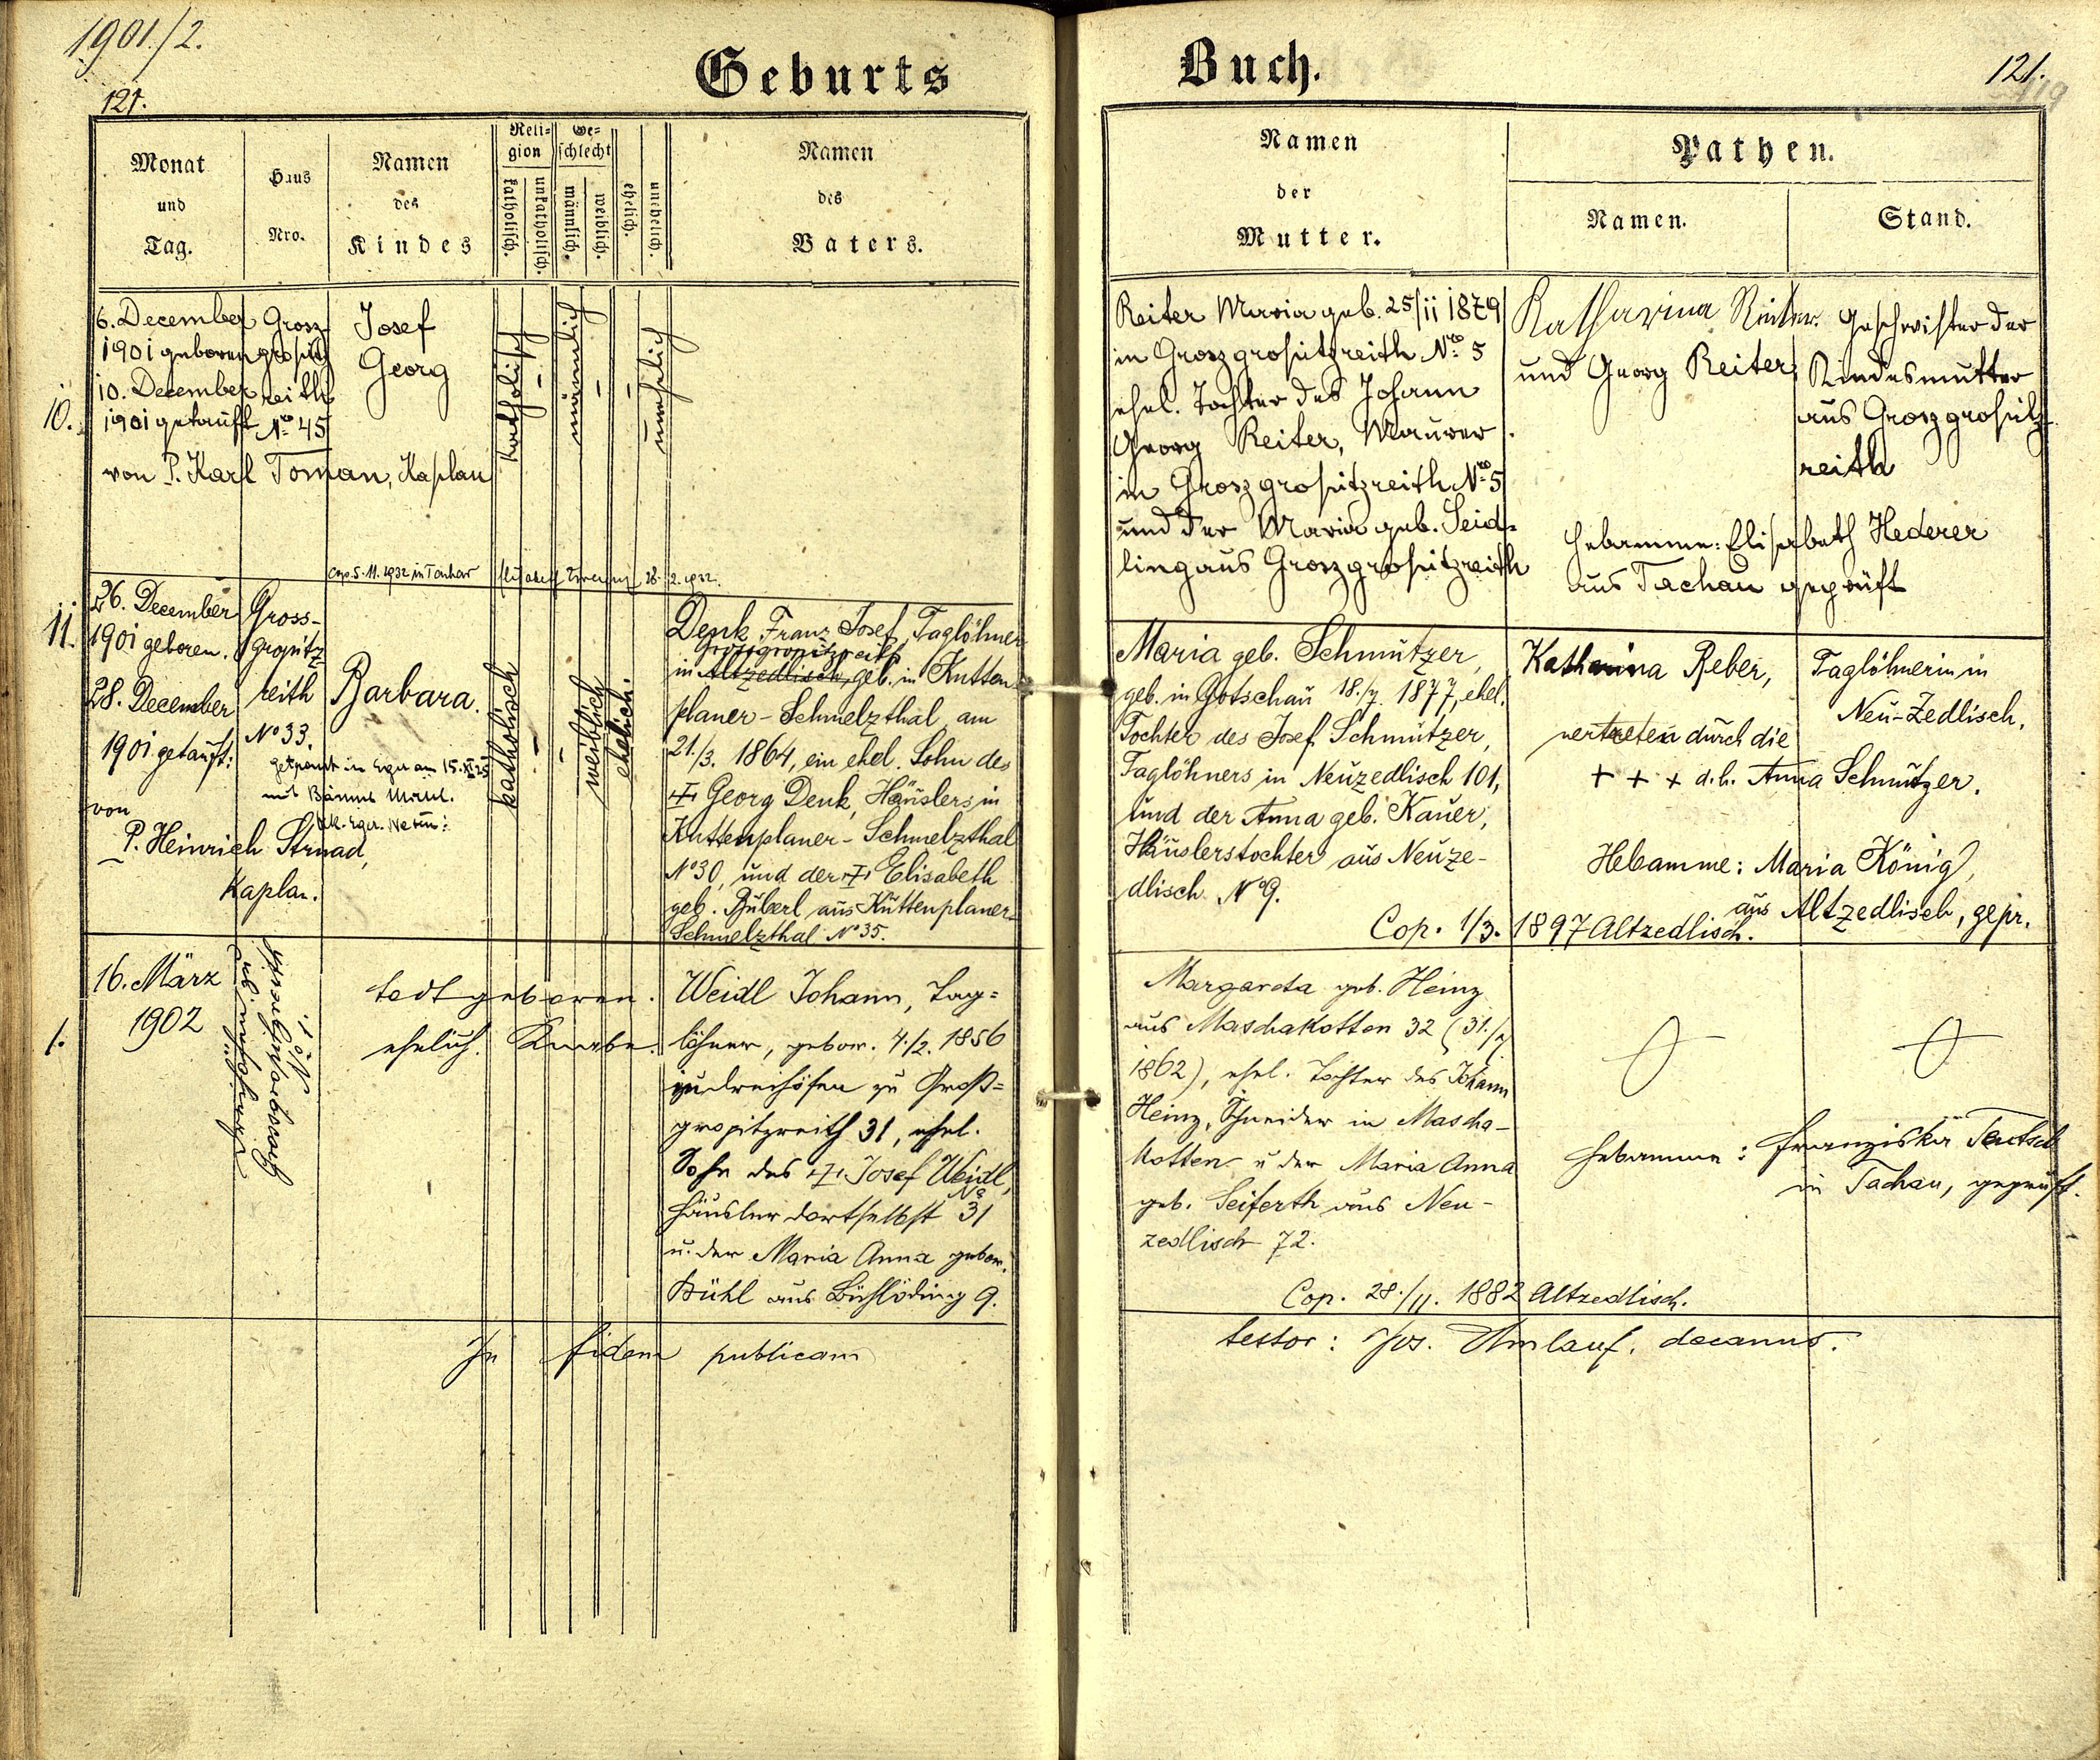 1901./2.
121.
Geburts Buch.
121.
119
Monat und Tag.
Haus Nro.
Namen des Kindes
Religion
katholisch.
unkatholisch.
Geschlecht
männlich.
weiblich.
ehelich.
unehelich.
Namen des Vaters.
Namen der Mutter.
Pathen.
Namen.
Stand.
10.
6. December
1901 geboren
10. December
1901 getauft
von P. Karl Toman, Kaplan
Grosz-
grositz
reith
No 45
Josef
Georg
katholisch
-
männlich
-
-
unehelich
Cop. 5. 11. 1932 in Tachau
28. 2. 1932.
Reiter Maria geb. 25/11 1879
in Groszgrositzreith No 5
ehel. Tochter des Johann
Georg Reiter, Maurer
in Groszgrositzreith No 5
und der Maria geb. Seid-
ling aus Groszgrositzreith
Katharina Reiter
und Georg Reiter
Geschwister der
Kindesmutter
aus Groszgrositz-
reith
Hebamme: Elisabeth Hederer
aus Tachau geprüft
11.
26. December
1901 geboren.
28. December
1901 getauft:
von
P. Heinrich Strnad,
Kaplan.
Gross-
gropitz
reith
No 33.
Barbara.
getraut in Eger am 15.
mit
katholisch
-
-
weiblich
ehelich.
Denk Franz Josef, Taglöhner
Grossgropitzreith
in Altzedlisch, geb. in Kutten-
planer-Schmelzthal am
21./3. 1864, ein ehel. Sohn des
+ Georg Denk, Häuslers in
Kuttenplaner-Schmelzthal
No 30, und der + Elisabeth
geb. Püberl aus Kuttenplaner-
Schmelzthal No 35.
Maria geb. Schmutzer,
geb. in Gotschau 18./7. 1877, ehel.
Tochter des Josef Schmutzer,
Taglöhners in Neuzedlisch 101,
und der Anna geb. Kauer,
Häuslerstochter aus Neuze-
dlisch No 9.
Cop. 1/3. 1897 Altzedlisch.
Katharina Reber,
vertreten durch die
+ + + d.h. Anna Schmutzer.
Taglöhnerin in
Neu-Zedlisch.
Hebamme: Maria König,
aus Altzedlisch, gepr.
1.
16. März
1902
todt geboren.
ehelich. Knabe.
Weidl Johann, Tag-
löhner, gebor. 4./2. 1856
zu Groß-
gropitzreith 31, ehel.
Sohn des + Josef Weidl,
Häusler dortselbst No 31
u. der Maria Anna gebor.
Kühl aus 9.
Margareta geb. Heinz
aus Maschakotten 32 (31./7.
1862), ehel. Tochter des Johann
Heinz, Schneider in Mascha-
kotten u der Maria Anna
geb. Seiferth aus Neu-
zedlisch 72.
Cop. 28./11. 1882 Altzedlisch.
Hebamme: Franziska Teutsch
in Tachau, geprüft.
In fidem publicam
testor: Jos. Umlauf, decanus.